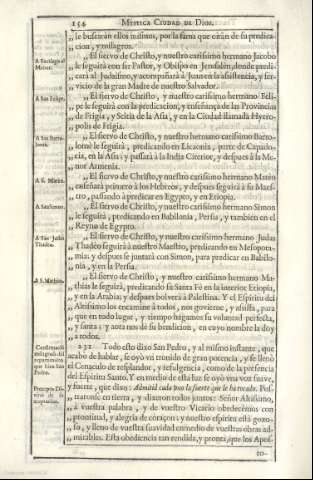 154 MYSTICA CIUDAD DE DIOS.
„ le buscaràn ellos mismos, por la fama que oiràn de su predica-
„ cion, y milagros.
A Santiago el Menor.
„ El siervo de Christo, y nuestro carissimo hermano Jacobo
„ le seguirà con ser Pastor, y Obispo en Jerusalèn, donde predi-
„ carà al Judaismo, y acompañarà à Juan en la assistencia, y ser-
„ vicio de la gran Madre de nuestro Salvador.
A San Felipe.
„ El siervo de Christo, y nuestro carissimo hermano Feli-
„ pe le seguirà con la predicacion, y enseñança de las Provincias
„ de Frigia, y Scitia de la Asia, y en la Ciudad llamada Hyero-
„ polis de Frigia.
A San Barto-
lomè.
„ El siervo de Christo, y nuestro carissimo hermano Barto-
„ lomè le seguirà, predicando en Licaonia, parte de Capado-
„ cia, en la Asia: y passarà à la India Citerior, y despues à la Me-
„ nor Armenia.
A S. Matèo.
„ El siervo de Christo, y nuestro carissimo hermano Matèo
„ enseñarà primero à los Hebreos, y despues seguirà à su Maes-
„ tro, passando à predicar en Egypto, y en Etiopia.
A San Simon.
„ El siervo de Christo, y nuestro carissimo hermano Simon
„ le seguirà, predicando en Babilonia, Persia, y tambien en el
„ Reyno de Egypto.
A San Judas Thadèo.
„ El siervo de Christo, y nuestro carissimo hermano Judas
„ Thadèo seguirà à nuestro Maestro, predicando en Mesopota-
„ mia: y despues se juntarà con Simon, para predicar en Babilo-
„ nia, y en la Persia.
A S. Mathias.
„ El siervo de Christo, y nuestro carissimo hermano Ma-
„ thias le seguirà, predicando su Santa Fè en la interior Etiopia,
„ y en la Arabia: y despues bolverà à Palestina. Y el Espiritu del
„ Altissimo nos encamine à todos, nos govierne, y assista, para
„ que en todo lugar, y tiempo hagamos su voluntad perfecta,
„ y santa: y aora nos dè su bendicion, en cuyo nombre la doy
„ à todos.
231 Todo esto dixo San Pedro, y al mismo instante, que
acabò de hablar, se oyò un tronido de gran potencia, y se llenò
el Cenaculo de resplandor, y refulgencia, como de la presencia
del Espiritu Santo. Y en medio de esta luz se oyò una voz suave,
y fuerte, que dixo: Admitid cada uno la suerte que le ha tocado. Pos-
traronse en tierra, y dixeron todos juntos: Señor Altissimo,
à vuestra palabra, y de vuestro Vicario obedecemos con
prontitud, y alegria de coraçon: y nuestro espiritu està gozo-
so, y lleno de vuestra suavidad en medio de vuestras obras ad-
mirables. Esta obediencia tan rendida, y pronta, que los Apos-